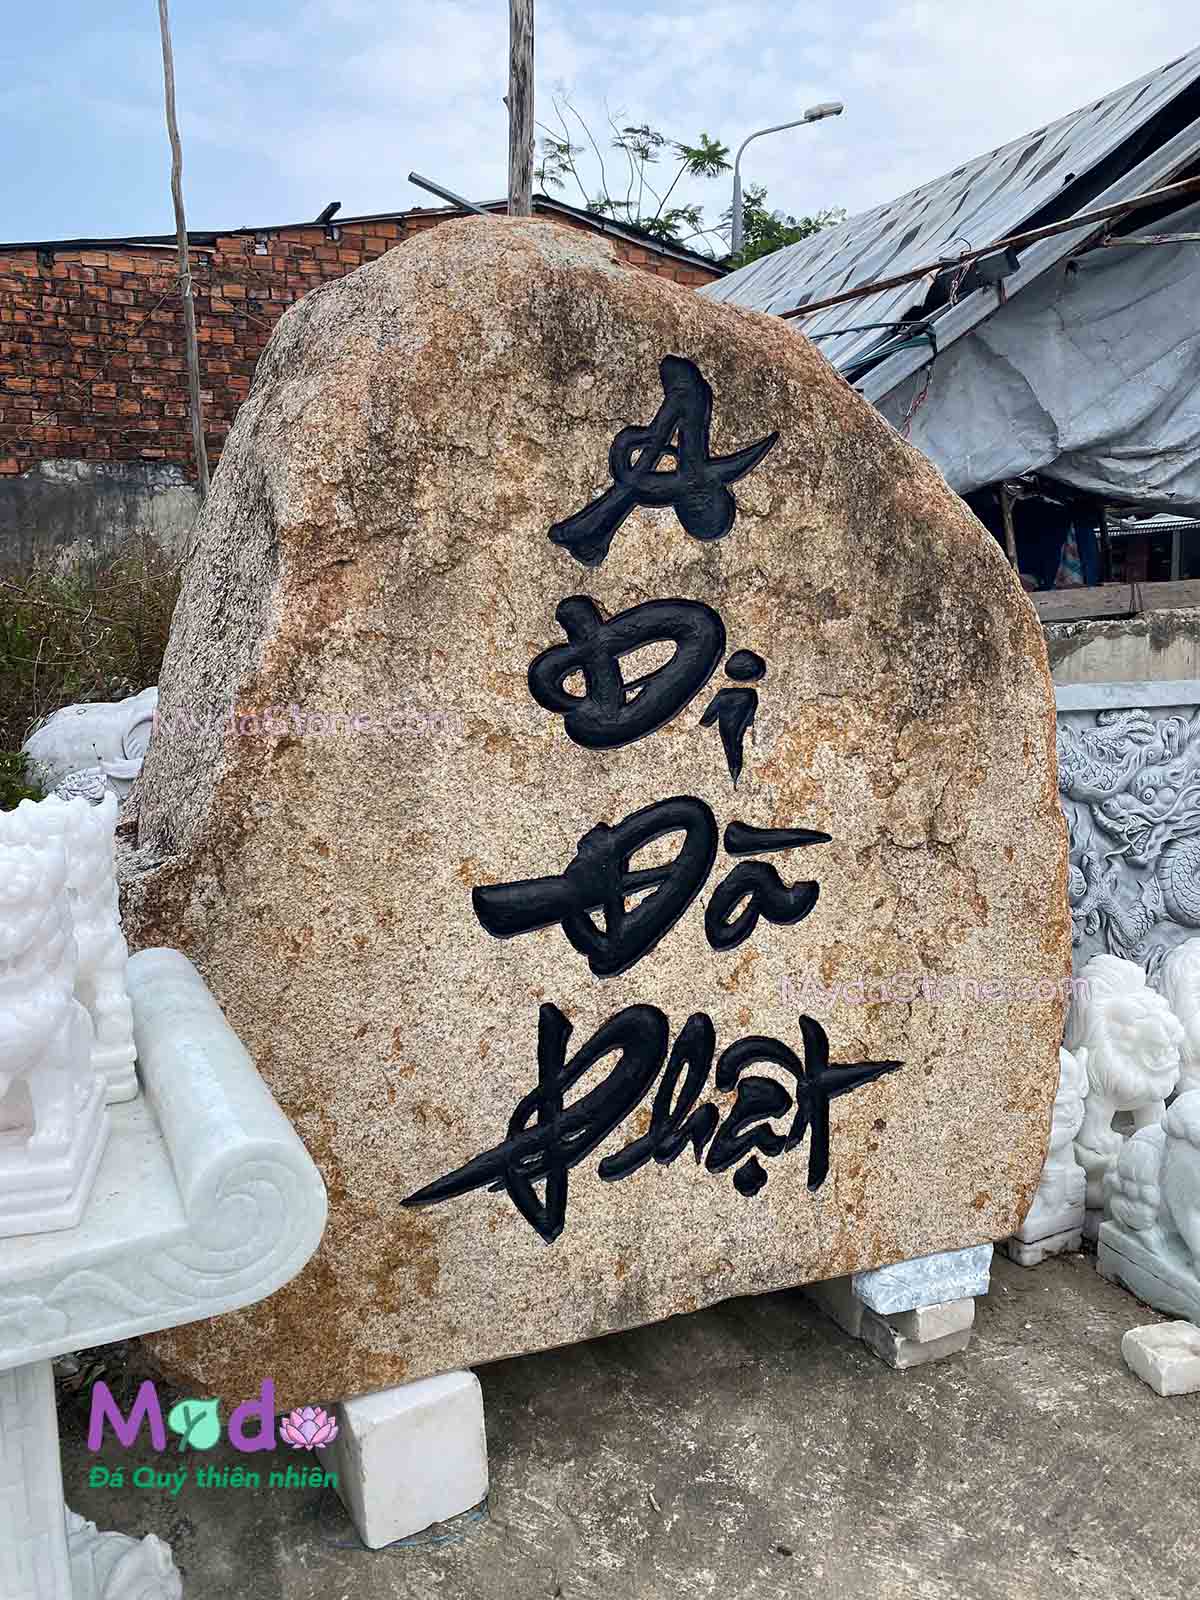 A
Di
Đà
Phật
MydaStone.com
MydaStone.com
Myda
Đá Quý thiên nhiên